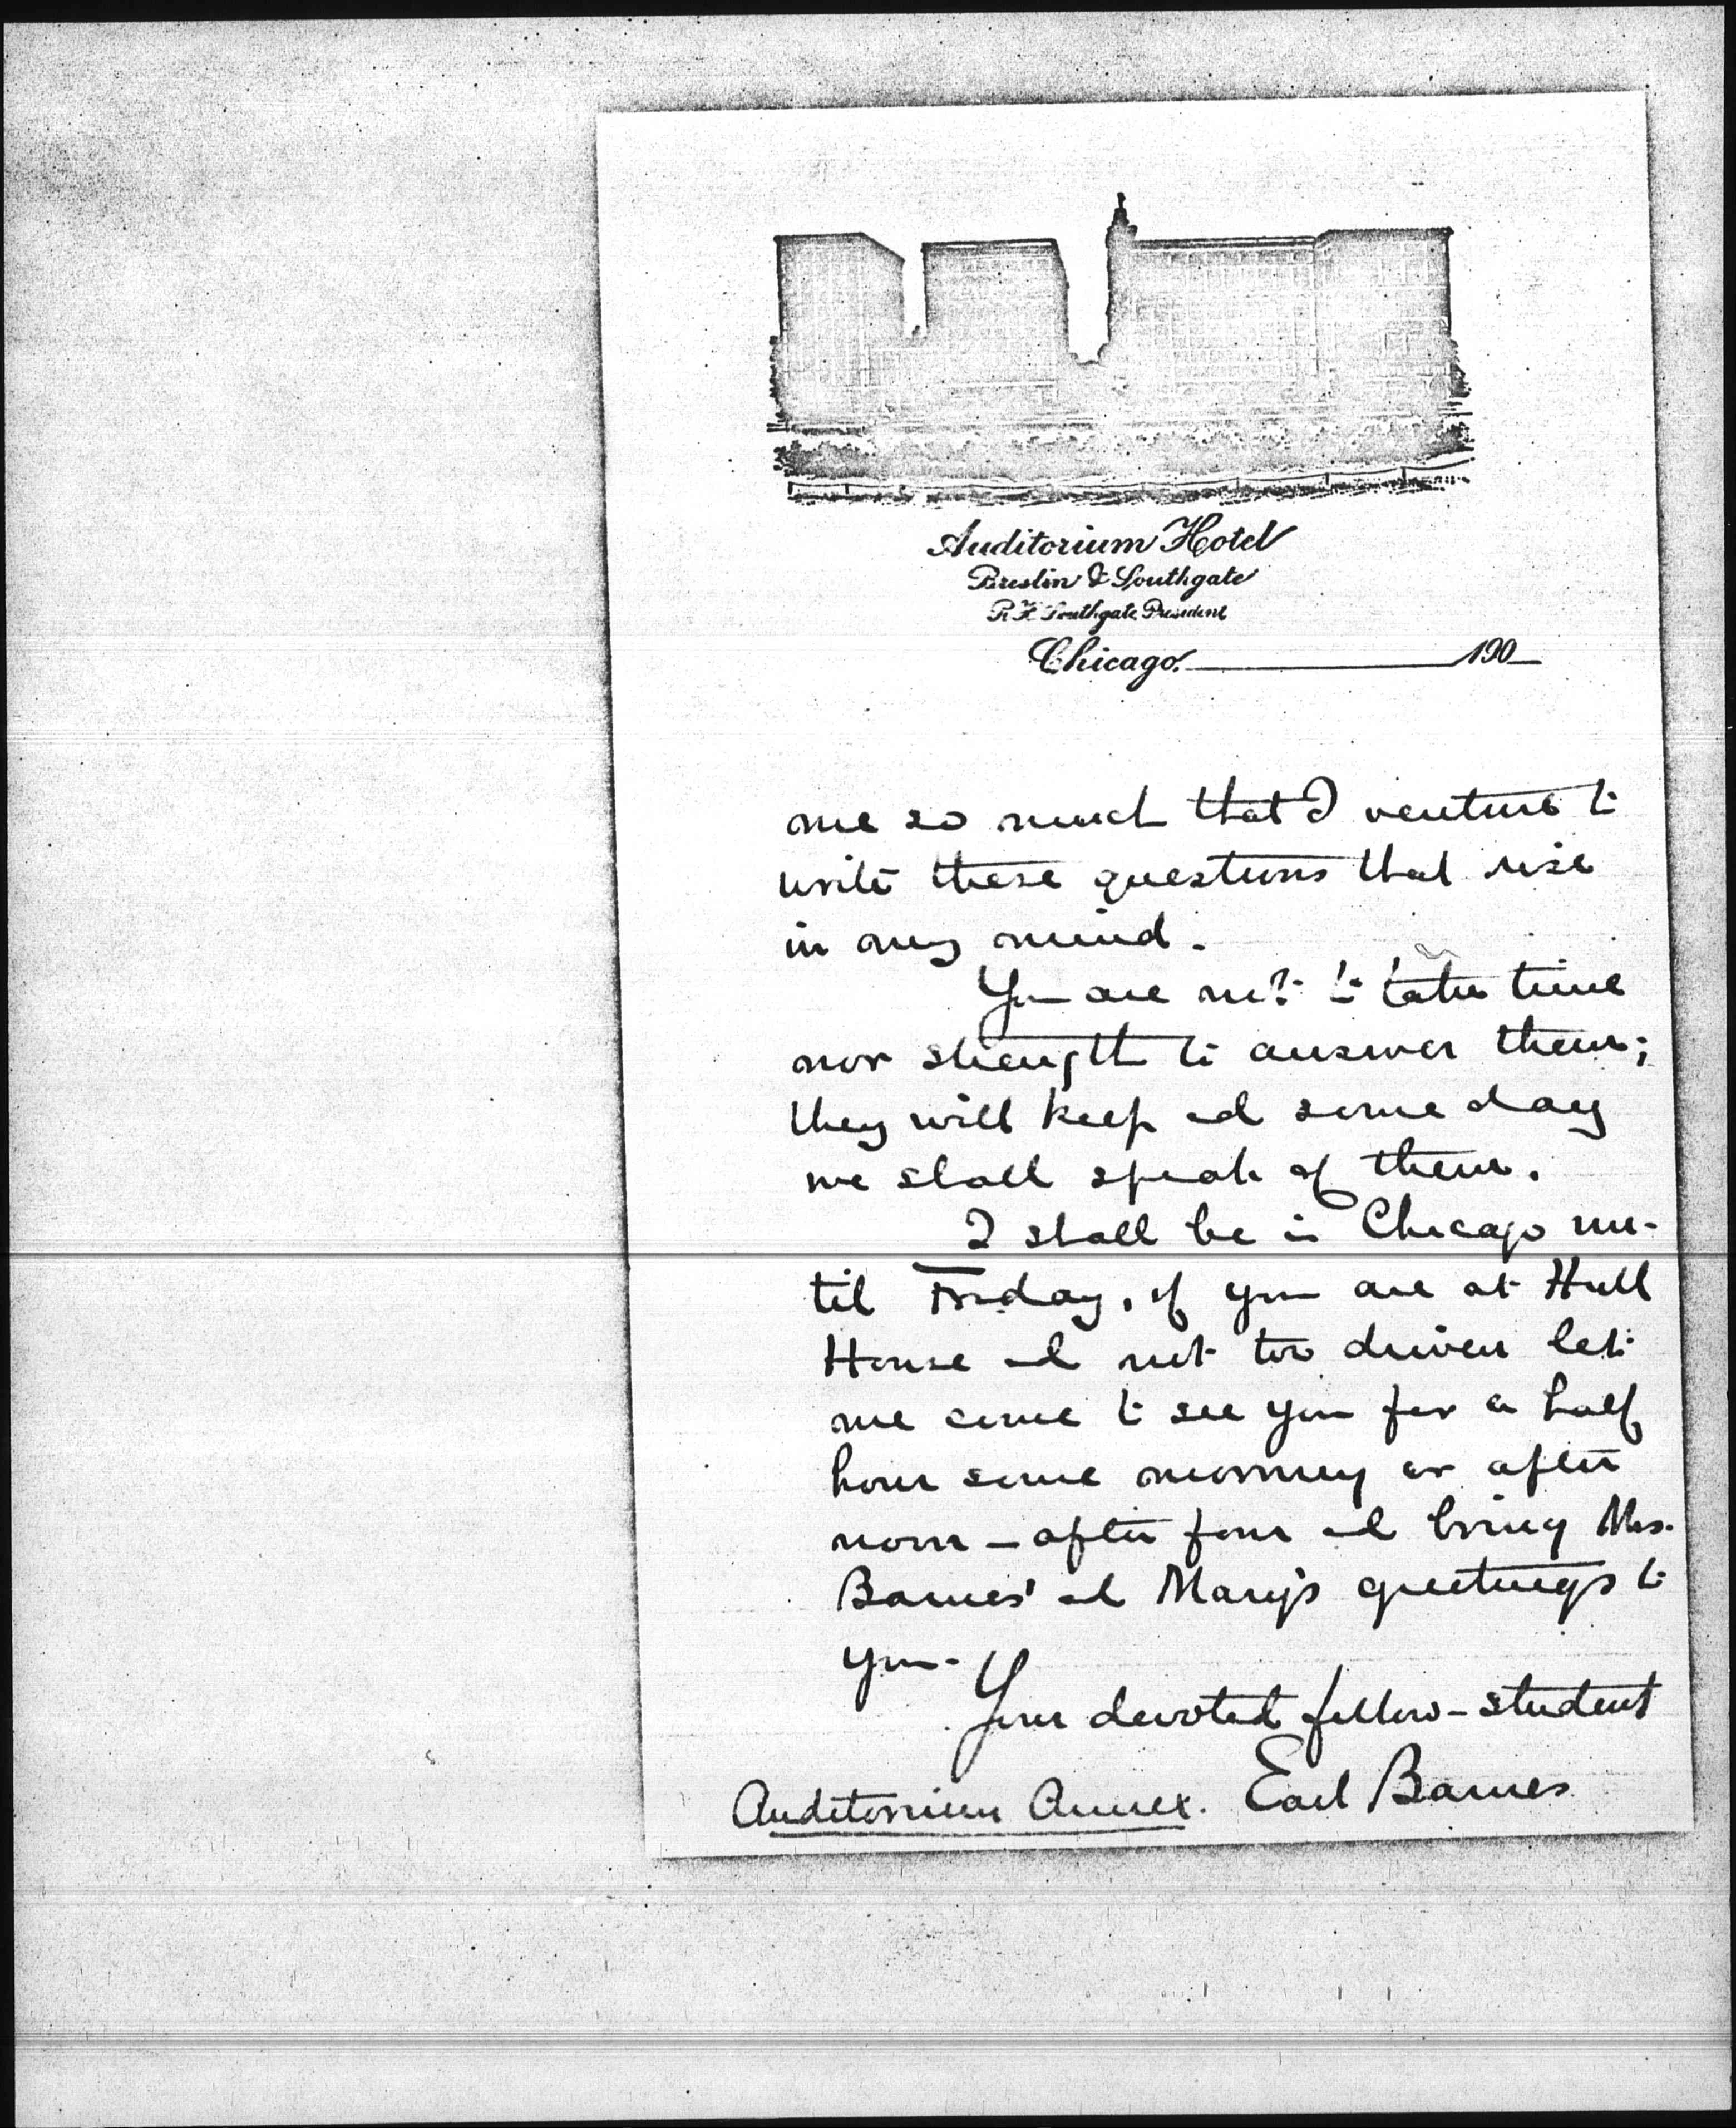 Auditorium Hotel
Breslin & Southgate
R. H. Southgate President
Chicago. 190
me so much that I venture to
write these questions that rise
in my mind.
You are not to take time
nor strength to answer them;
they will keep and some day
we shall speak of them.
I shall be in Chicago un-
til Friday, if you are at Hull
House and not too driven let
me come to see you for a half
hour some morning or after
noon – after four and bring Mrs.
Barnes' and Mary's greetings to
you.
Your devoted fellow-student
Auditorium Annex. Earl Barnes